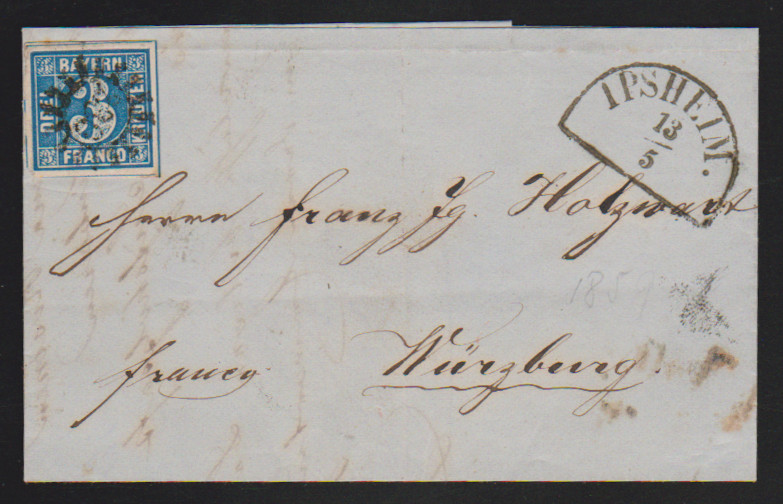 BAYERN
DREI
3
KREUZER
FRANCO
IPSHEIM.
13
5
Herrn Franz Jg. Holzwart
Würzburg.
franco